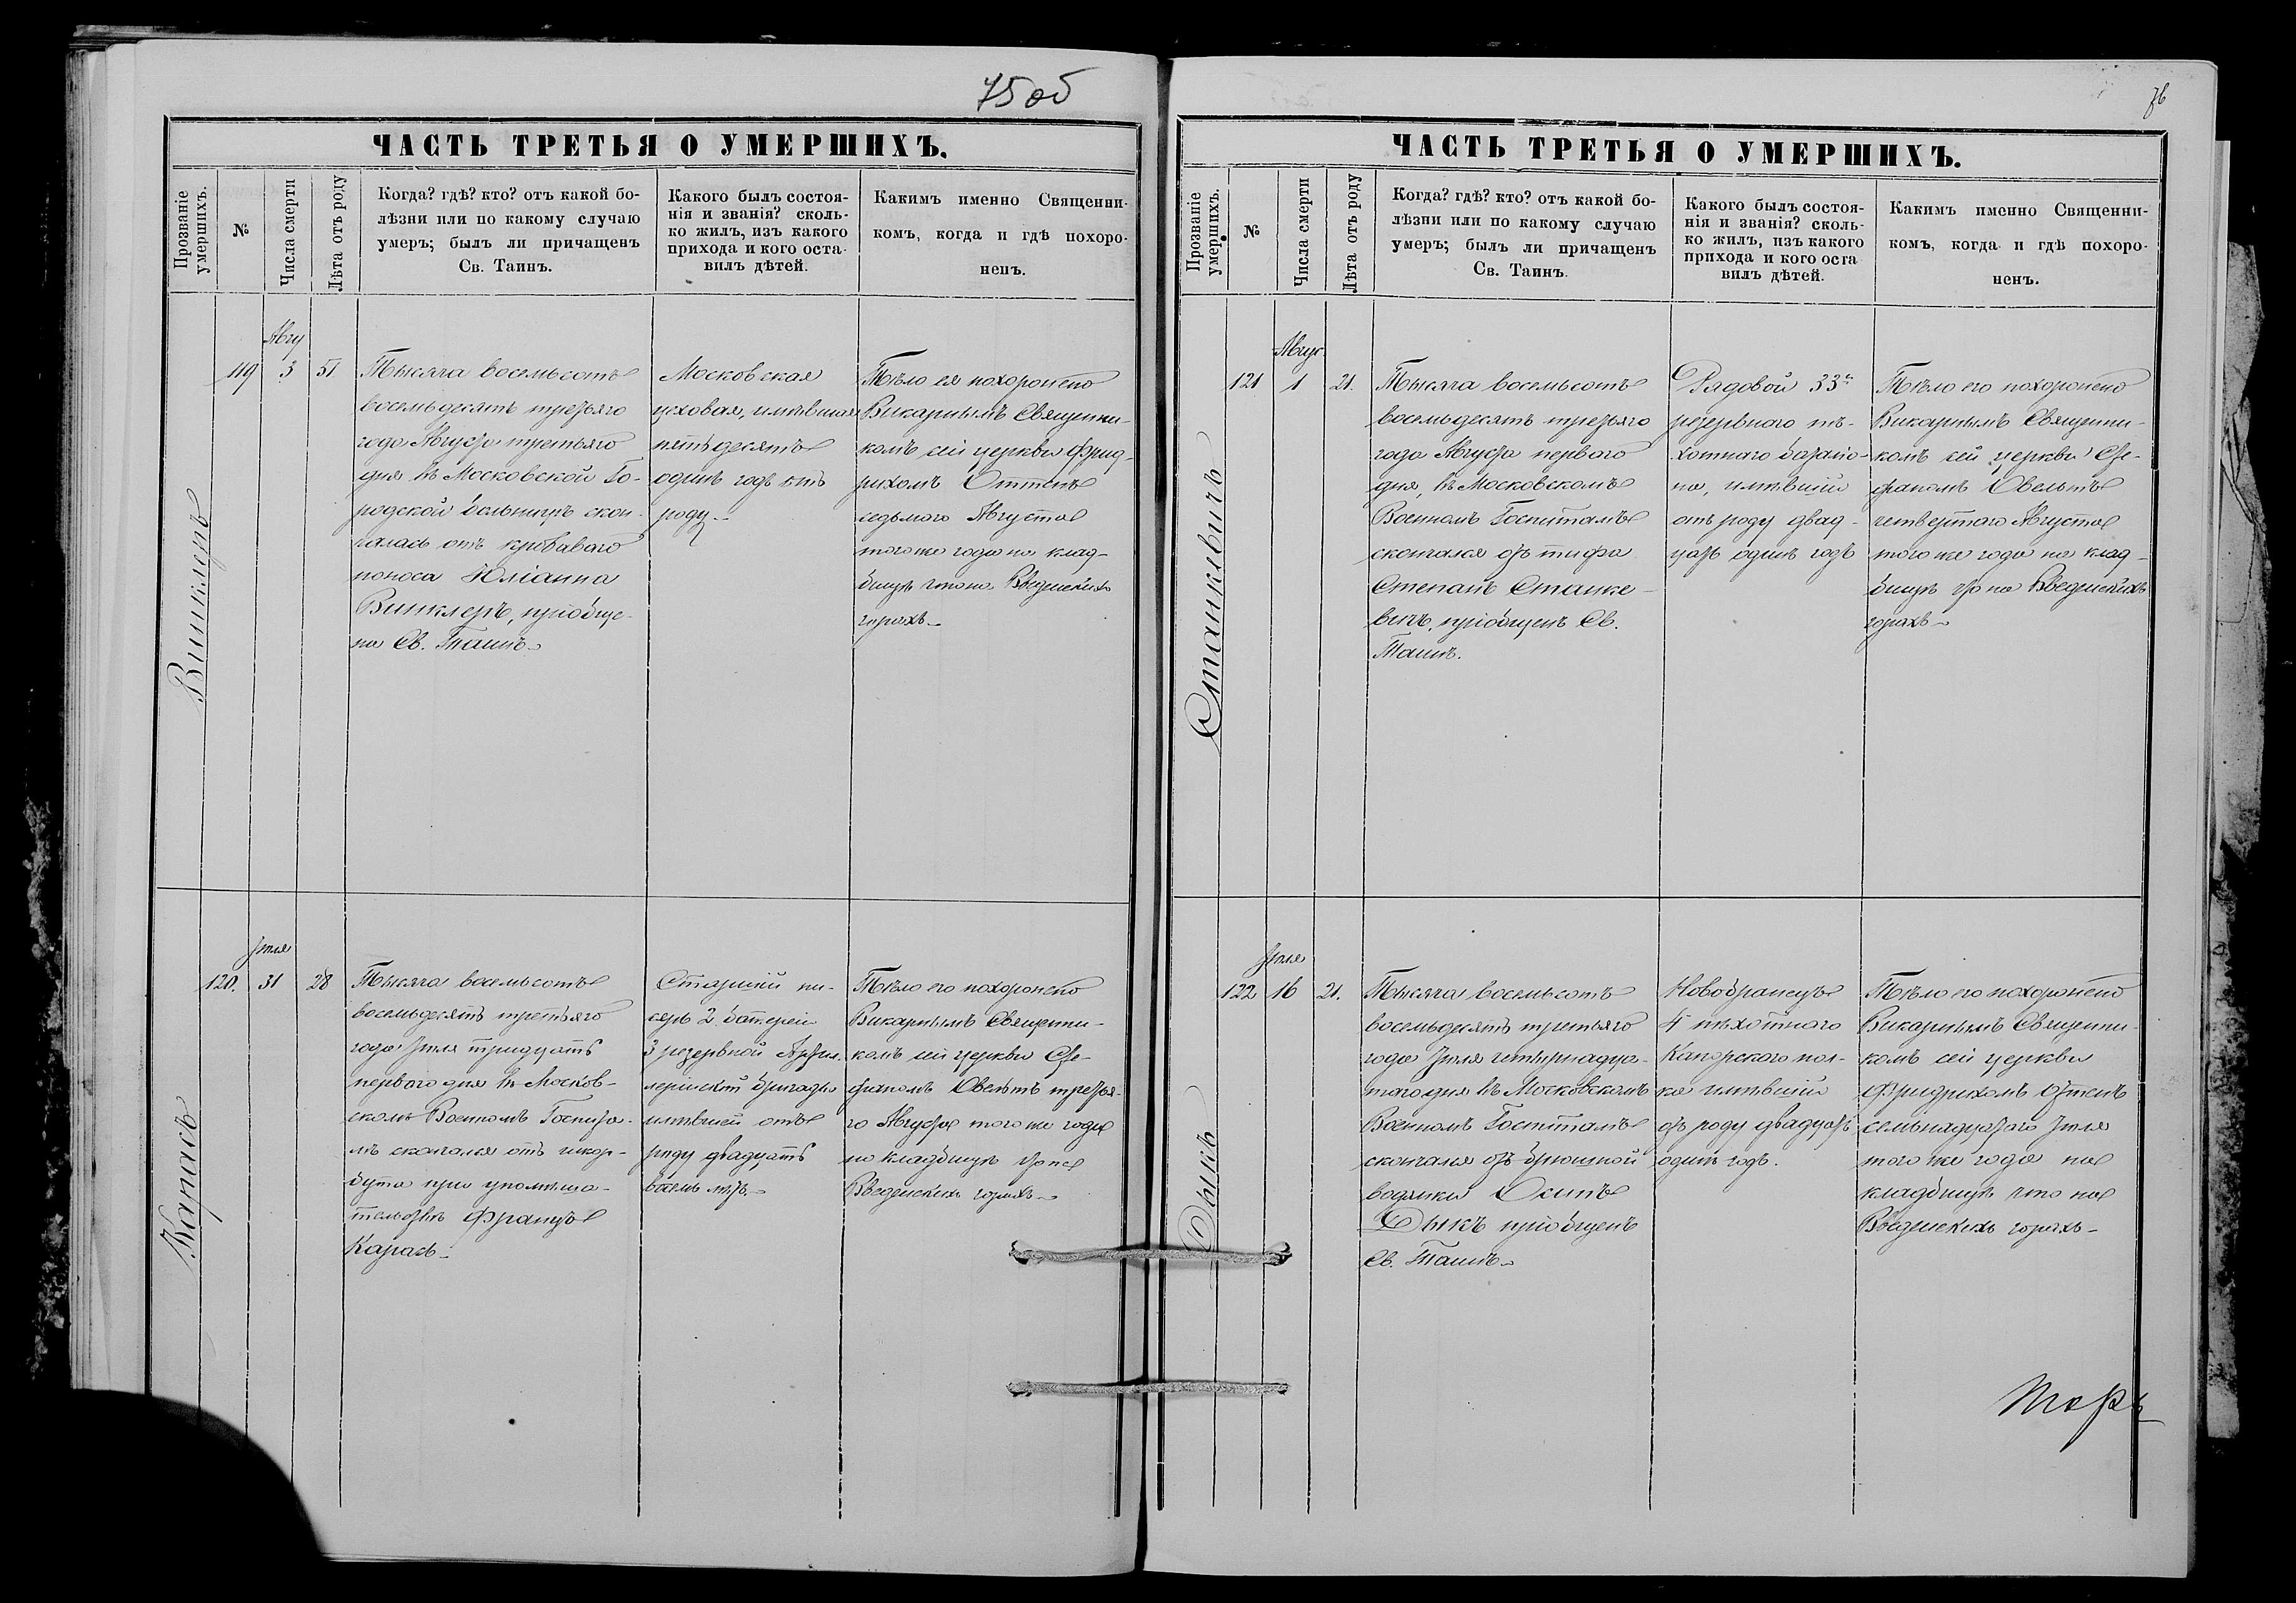 75 об
ЧАСТЬ ТРЕТЬЯ О УМЕРШИХЪ.
Прозваніе
умершихъ.
№
Числа смерти
Лѣта отъ роду
Когда? гдѣ? кто? отъ какой бо-
лѣзни или по какому случаю
умеръ; былъ ли причащенъ
Св. Таинъ.
Какого былъ состоя-
нія и званія? сколь-
ко жилъ, изъ какого
прихода и кого оста-
вилъ дѣтей.
Какимъ именно Священни-
комъ, когда и гдѣ похоро-
ненъ.
Винклеръ
119
Авгу
3
51
Тысяча восемьсотъ
восемьдесятъ третьяго
года Августа третьяго
дня въ Московской Го-
родской больницѣ скон-
чалась отъ кроваваго
поноса Юліанна
Винклеръ, пріобще-
на Св. Таинъ.
Московская
цеховая, имѣвшая
пятьдесятъ
одинъ годъ отъ
роду.
Тѣло ея похоронено
Викарнымъ Священни-
комъ сей церкви Фрид-
рихомъ Оттенъ
седьмого Августа
того же года на клад-
бищѣ что на Введенскихъ
горахъ.
Карась
120.
Іюля
31
28
Тысяча восемьсотъ
восемьдесятъ третьяго
года Іюля тридцать
перваго дня въ Москов-
скомъ Военномъ Госпита-
лѣ скончался отъ скор-
бута при умѣша-
тельствѣ Францъ
Карась.
Старшій пи-
сарь 2 баттереи
3 резервной Артил-
лерійской бригады
имѣвшей отъ
роду двадцать
восемь лѣтъ.
Тѣло его похоронено
Викарнымъ Священни-
комъ сей церкви Сте-
фаномъ Овельтъ третья-
го Августа того же года
на кладбищѣ что на
Введенскихъ горахъ.
76
ЧАСТЬ ТРЕТЬЯ О УМЕРШИХЪ.
Прозваніе
умершихъ.
№
Числа смерти
Лѣта отъ роду
Когда? гдѣ? кто? отъ какой бо-
лѣзни или по какому случаю
умеръ; былъ ли причащенъ
Св. Таинъ.
Какого былъ состоя-
нія и званія? сколь-
ко жилъ, изъ какого
прихода и кого оста
вилъ дѣтей.
Какимъ именно Священни-
комъ, когда и гдѣ похоро-
ненъ.
Станкевичъ
121
Авгус
1
21.
Тысяча восемьсотъ
восемьдесятъ третьяго
года Августа перваго
дня, въ Московскомъ
Военномъ Госпиталѣ
скончался отъ тифа
Степанъ Станке-
вичъ, пріобщенъ Св.
Таинъ.
Рядовой 33го
резервного пѣ-
хотнаго баталіо-
на, имѣвшій
отъ роду двад-
цать одинъ годъ
Тѣло его похоронено
Викарнымъ Священни-
комъ сей церкви Сте-
фаномъ Овельтъ
четвертаго Августа
того же года на клад-
бищѣ что на Введенскихъ
горахъ.
Дыкъ
122
Іюля
16
21.
Тысяча восемьсотъ
восемьдесятъ третьяго
года Іюля четырнадца-
таго дня въ Московскомъ
Военномъ Госпиталѣ
скончался отъ брюшной
водянки Осипъ
Дыкъ пріобщенъ
Св. Таинъ.
Новобранецъ
4 пѣхотнаго
Капорского пол-
ка имѣвшій
отъ роду двадцать
одинъ годъ.
Тѣло его похоронено
Викарнымъ Священни-
комъ сей церкви
Фридрихомъ Оттенъ
семьнадцатаго Іюля
того же года на
кладбищѣ что на
Введенскихъ горахъ.